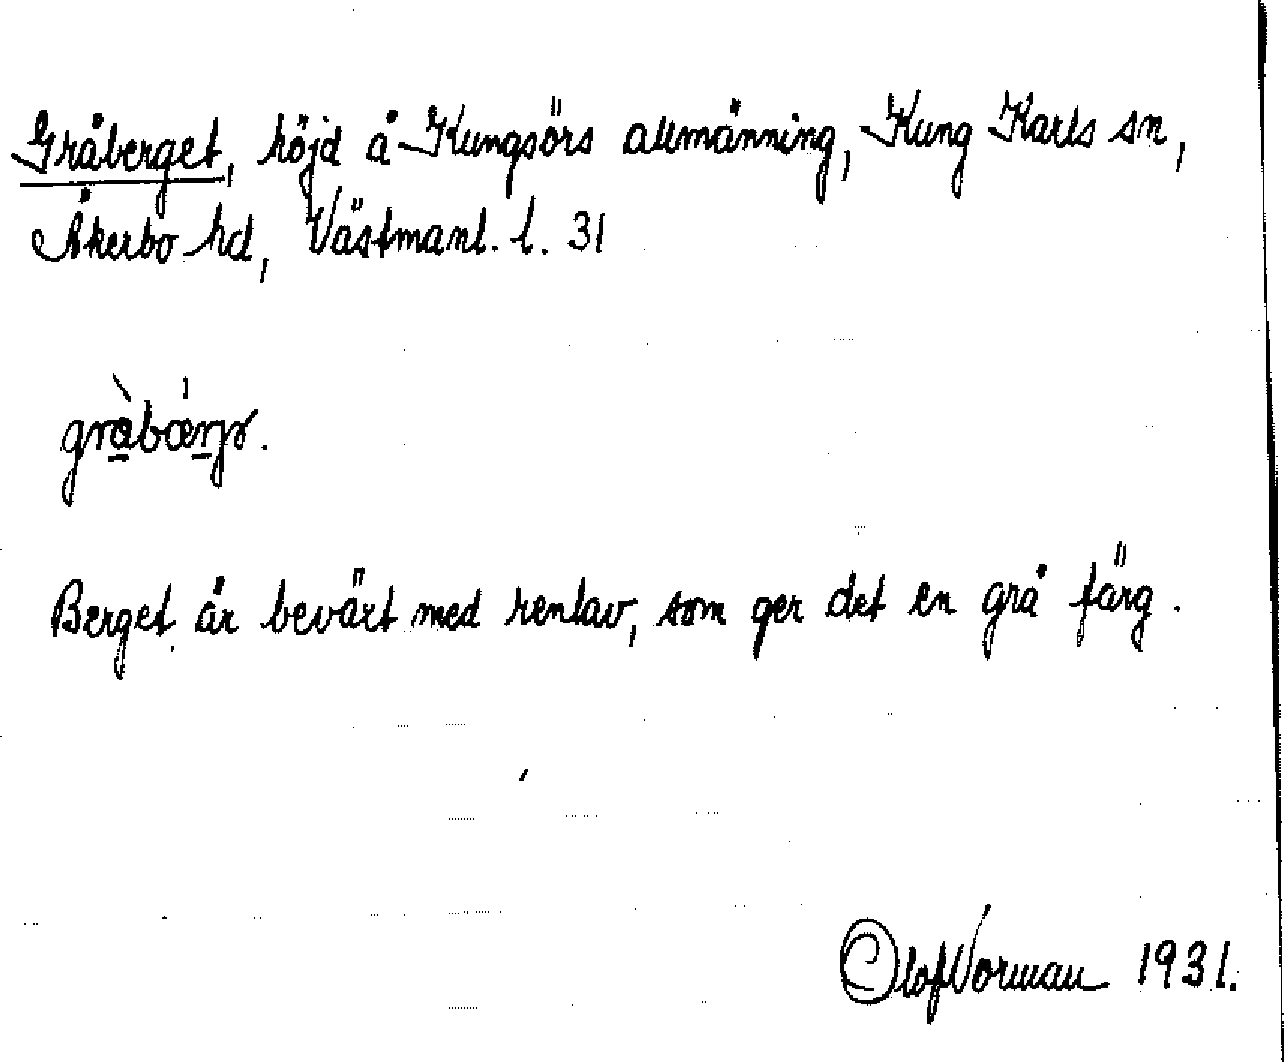 Gråberget, höjd å Kungsörs allmänning, Kung Karls sn,
Åkerbo hd, Västmanl. l. 31
Berget är bevärt med renlav, som ger det en grå färg.
Olof Norman 1931.